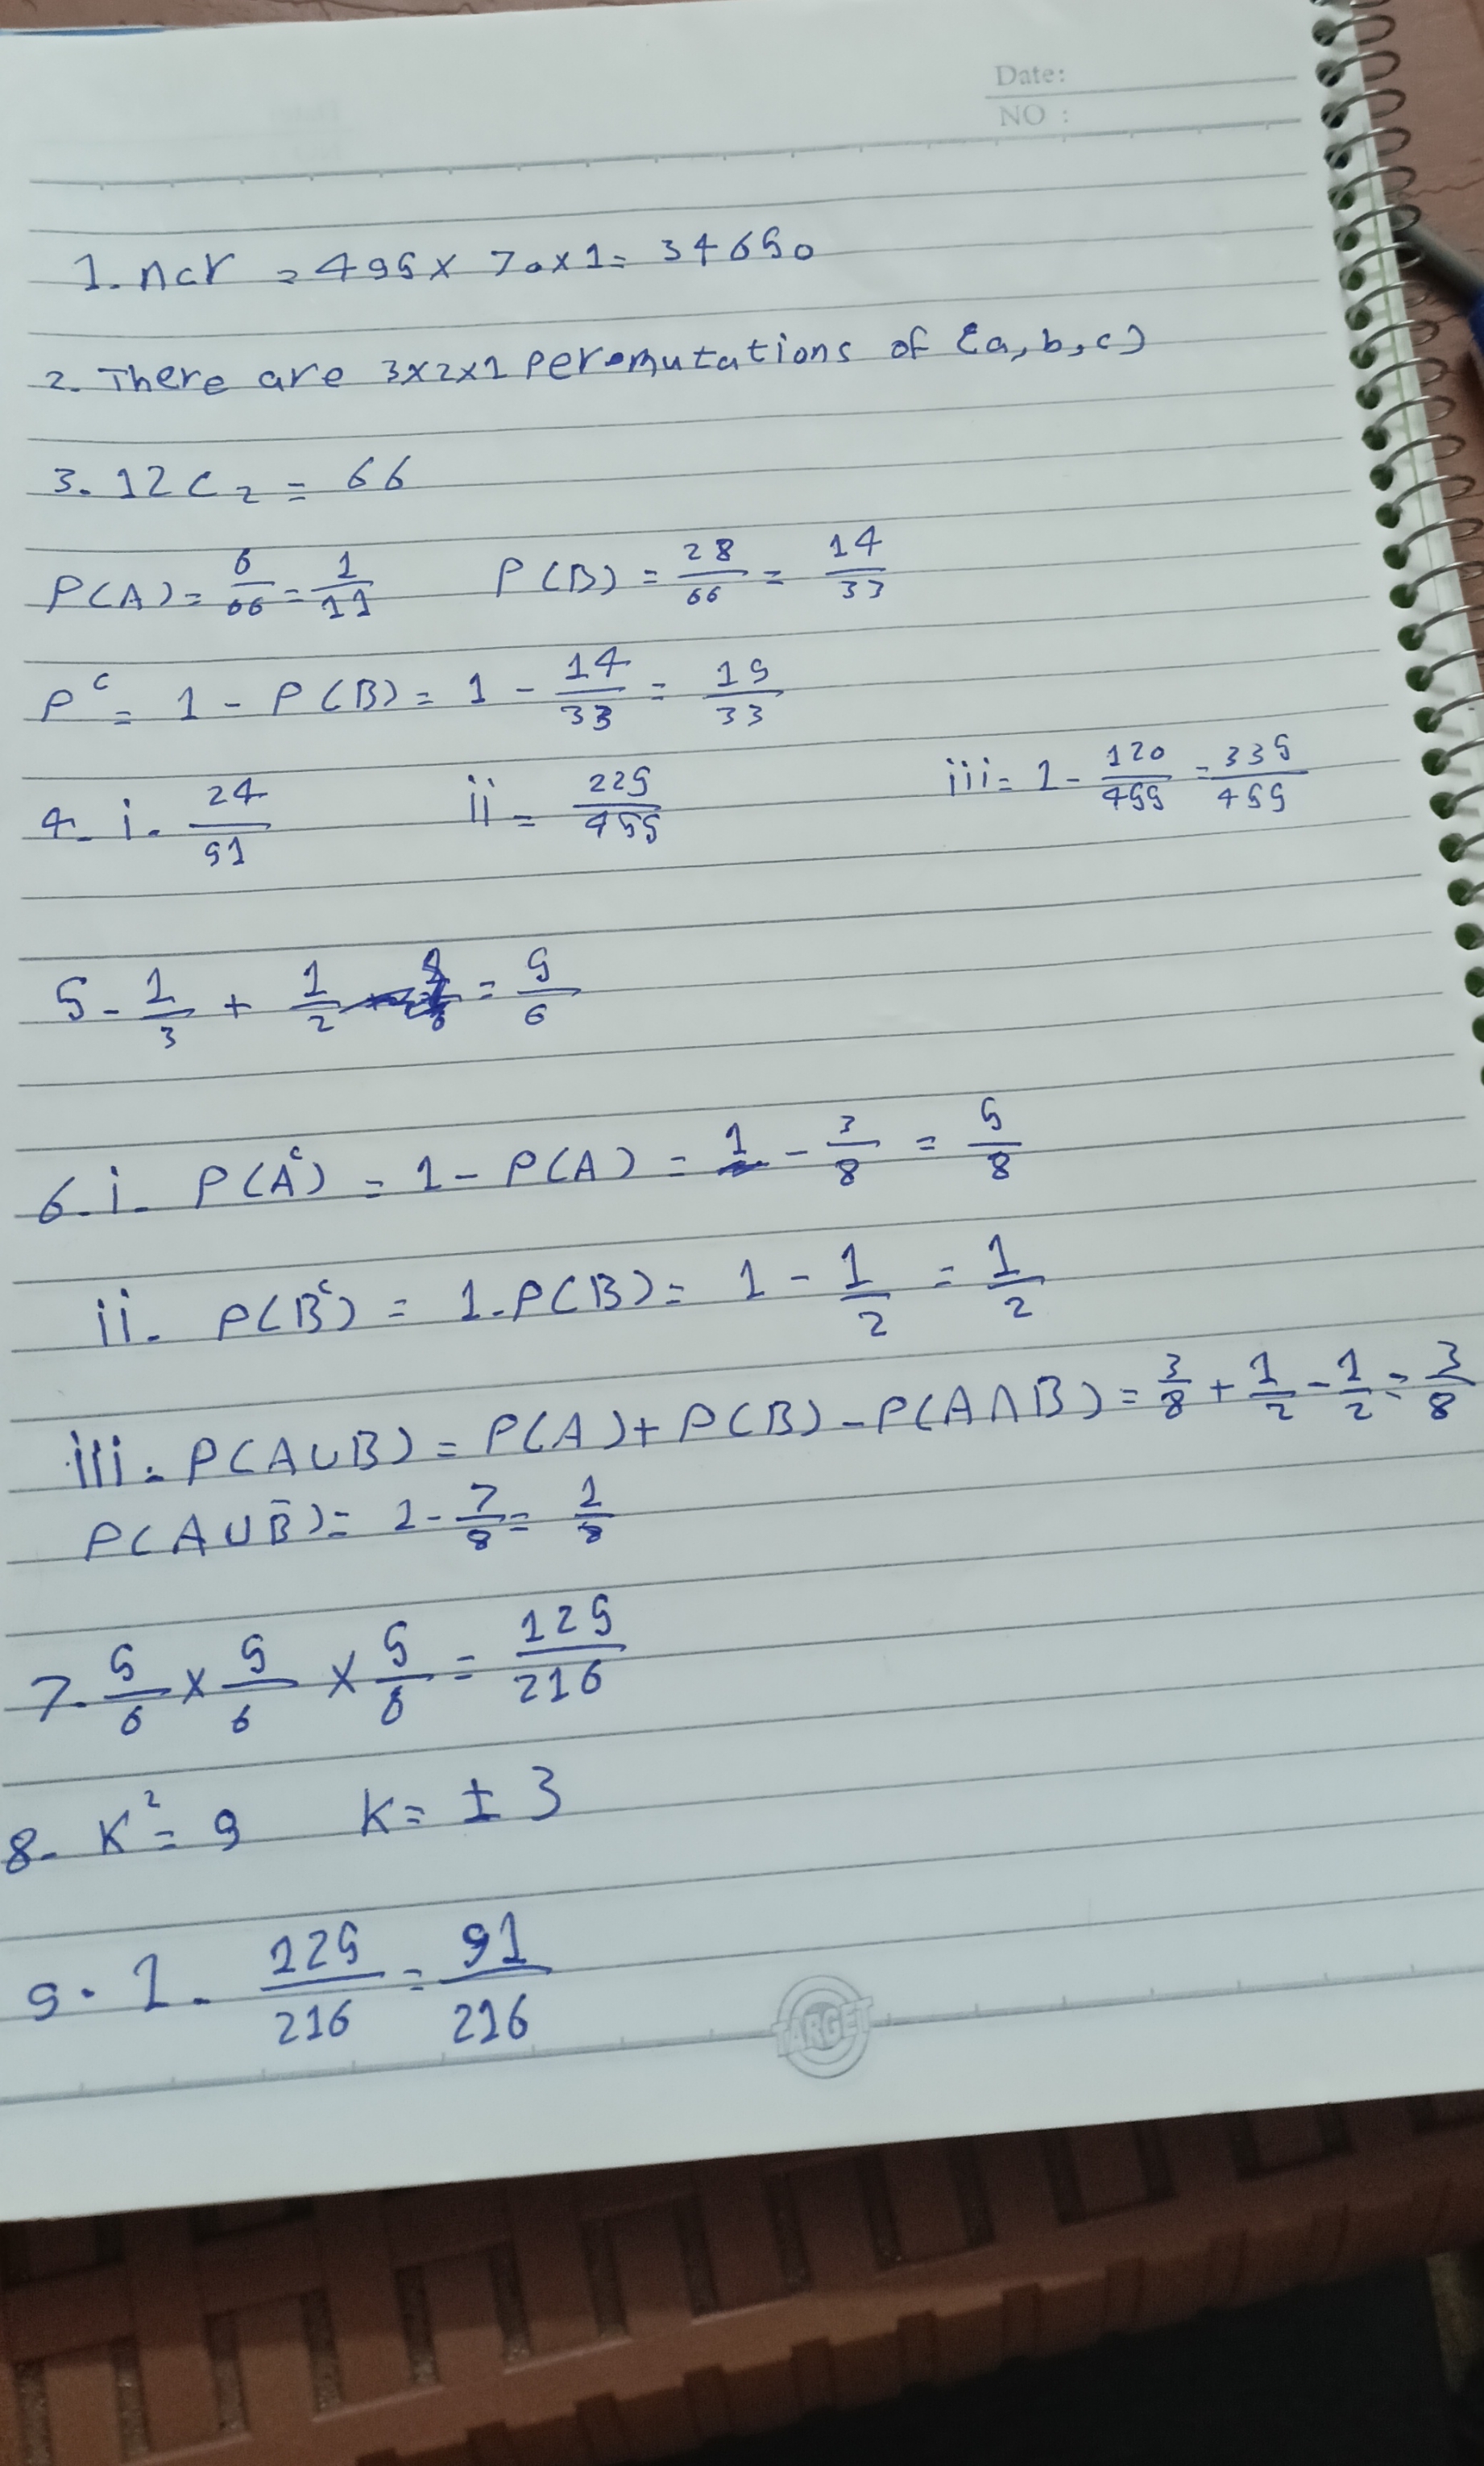 Date:
NO :
1. ncr = 495 x 70 x 1 = 34650
2. There are 3x2x1 peremutations of {a, b, c)
3. 12 C 2 = 66
P(A) = 6/66 = 1/11 P(B) = 28/66 = 14/33
P^c = 1 - P(B) = 1 - 14/33 = 19/33
4. i. 24/91 ii = 225/455 iii = 1 - 120/455 = 335/455
5 - 1/3 + 1/2 = 5/6
6. i. P(A^c) = 1 - P(A) = 1 - 3/8 = 5/8
ii. P(B^c) = 1 - P(B) = 1 - 1/2 = 1/2
iii. P(A∪B) = P(A) + P(B) - P(A∩B) = 3/8 + 1/2 - 1/2 = 3/8
P(A∪B̄) = 1 - 7/8 = 1/8
7. 5/6 x 5/6 x 5/6 = 125/216
8. K² = 9 K = ± 3
9. 1 - 125/216 = 91/216
TARGET